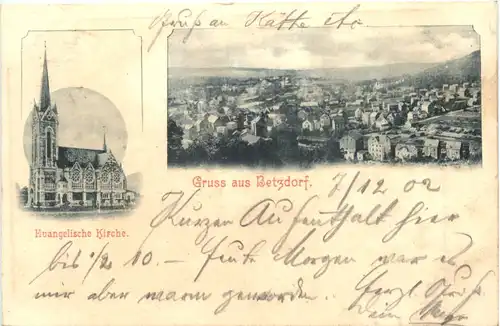 Gruß an Käthe etc.
Gruss aus Betzdorf.
7/12 02
Evangelische Kirche.
Kurzen Aufenthalt hier
bis 1/2 10. – heute Morgen war es
mir aber warm geworden.
Herzl. Gruß
Dein